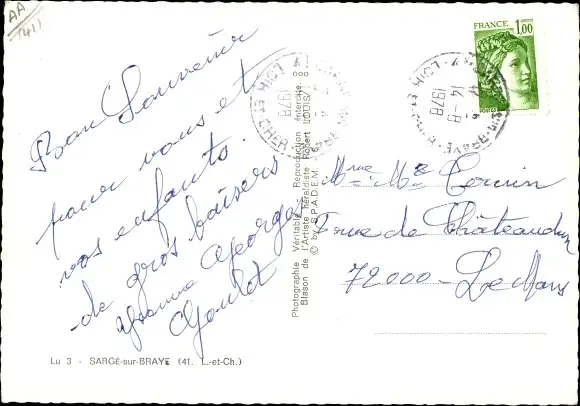 AA
1411
Bon Souvenir
pour vous et
vos enfants.
de gros baisers
Yvonne Georges
Goulet
Lu 3 - SARGÉ-sur-BRAYE (41. L.-et-Ch.)
Photographie Véritable - Reproduction Interdite
Blason de l'Artiste héraldiste Robert LOUIS
© by S.P.A.D.E.M.
FRANCE
1,00
POSTES
14-8
1978
LOIR
CHER
1978
Mme Mr
rue de Châteaudun
72000 - Le Mans